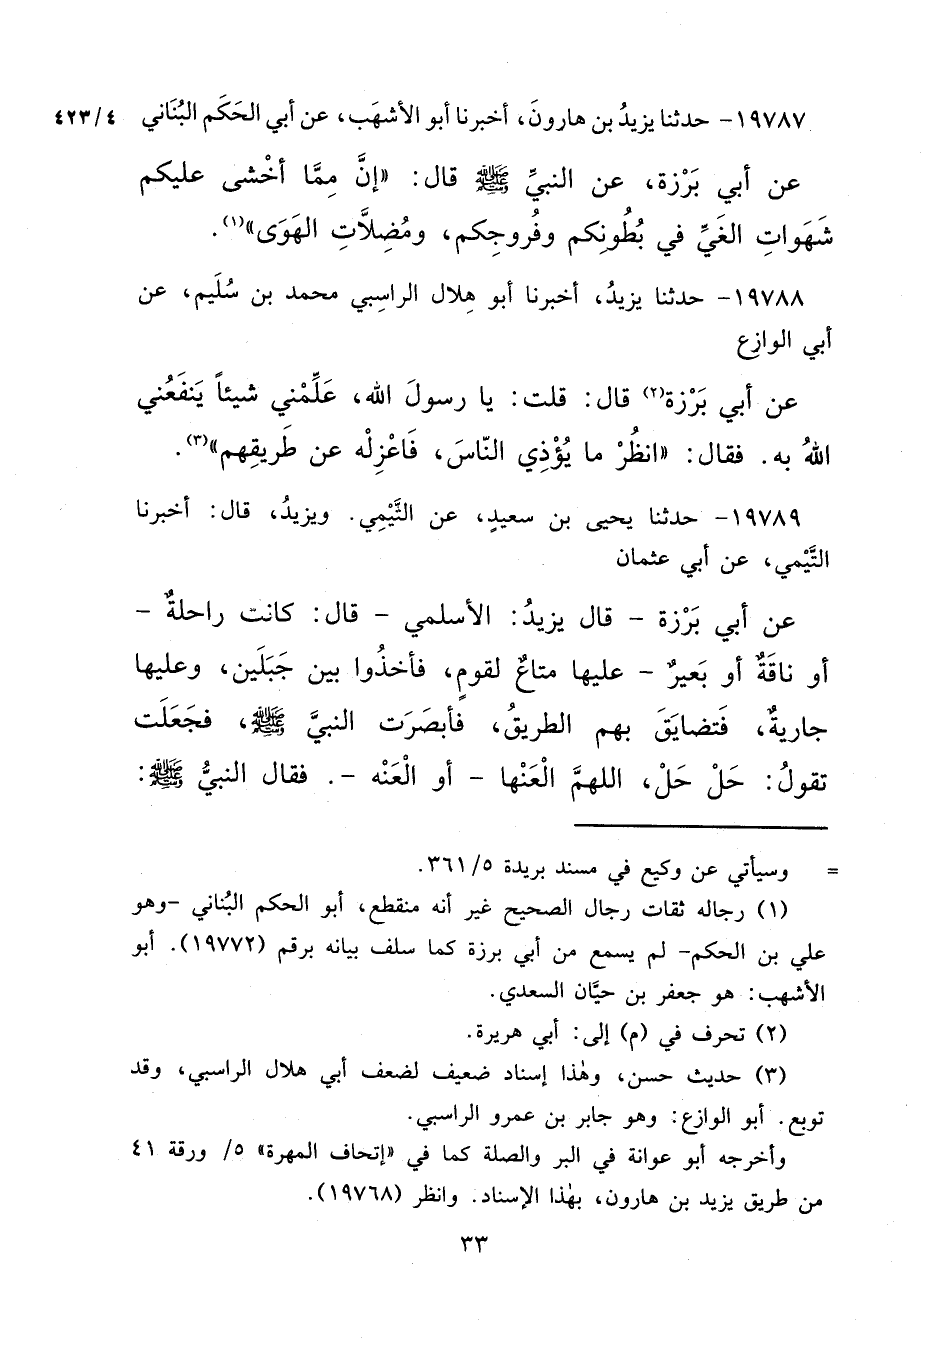 ١٩٧٨٧- حدثنا يزيدُ بن هارونَ، أخبرنا أبو الأشهَب، عن أبي الحَكَم البُنَاني ٤٢٣/٤
عن أبي بَرْزة، عن النبيِّ ﷺ قال: «إنَّ مِمَّا أخْشى عليكم
شَهَواتِ الغَيِّ في بُطُونِكم وفُروجِكم، ومُضِلاَّتِ الهَوَى»(١).
١٩٧٨٨- حدثنا يزيدُ، أخبرنا أبو هِلال الراسِبي محمد بن سُلَيم، عن
أبي الوازِع
عن أبي بَرْزة(٢) قال: قلت: يا رسولَ الله، عَلِّمْني شيئاً يَنفَعُني
اللهُ به. فقال: «انظُرْ ما يُؤْذِي النّاسَ، فَاعْزِلْه عن طَريقِهم»(٣).
١٩٧٨٩- حدثنا يحيى بن سعيدٍ، عن التَّيْمِي. ويزيدُ، قال: أخبرنا
التَّيْمي، عن أبي عثمان
عن أبي بَرْزة - قال يزيدُ: الأسلمي - قال: كانت راحلةٌ -
أو ناقَةٌ أو بَعيرٌ - عليها متاعٌ لقومٍ، فأخذُوا بين جَبَلَين، وعليها
جاريةٌ، فَتضايَقَ بهم الطريقُ، فأبصَرَت النبيَّ ﷺ، فجَعَلَت
تقولُ: حَلْ حَلْ، اللهمَّ الْعَنْها - أو الْعَنْه -. فقال النبيُّ ﷺ:
= وسيأتي عن وكيع في مسند بريدة ٣٦١/٥.
(١) رجاله ثقات رجال الصحيح غير أنه منقطع، أبو الحكم البُناني -وهو
علي بن الحكم- لم يسمع من أبي برزة كما سلف بيانه برقم (١٩٧٧٢). أبو
الأشهب: هو جعفر بن حيَّان السعدي.
(٢) تحرف في (م) إلى: أبي هريرة.
(٣) حديث حسن، وهٰذا إسناد ضعيف لضعف أبي هلال الراسبي، وقد
توبع. أبو الوازع: وهو جابر بن عمرو الراسبي.
وأخرجه أبو عوانة في البر والصلة كما في «إتحاف المهرة» ٥/ ورقة ٤١
من طريق يزيد بن هارون، بهٰذا الإسناد. وانظر (١٩٧٦٨).
٣٣